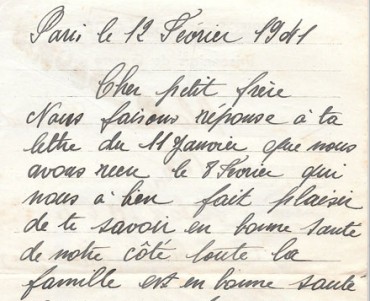 Paris le 12 Février 1941
Cher petit frère
Nous faisons réponse à ta
lettre du 11 Janvier que nous
avous recu le 8 Février qui
nous à bien fait plaisir
de te savoir en bonne santé
de notre côté toute la
famille est en bonne santé